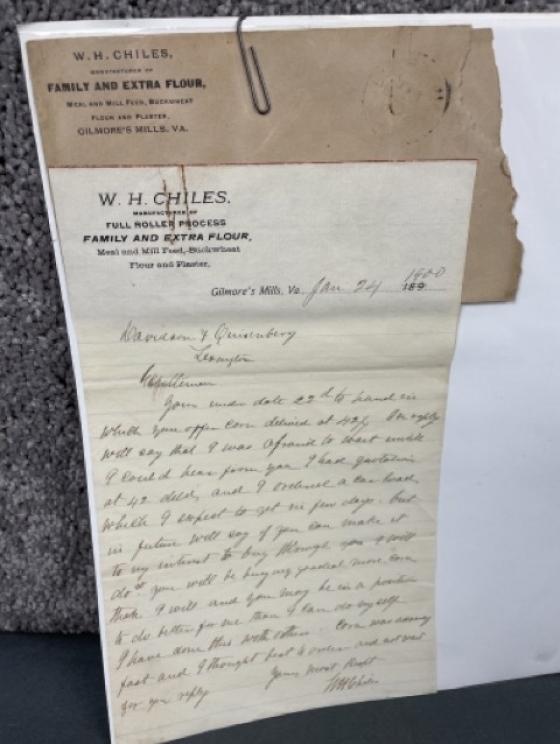 W. H. CHILES,
MANUFACTURER OF
FAMILY AND EXTRA FLOUR,
MEAL AND MILL FEED, BUCKWHEAT
FLOUR AND PLASTER,
GILMORE'S MILLS, VA.
W. H. CHILES,
MANUFACTURER OF
FULL ROLLER PROCESS
FAMILY AND EXTRA FLOUR,
Meal and Mill Feed, Buckwheat
Flour and Plaster,
Gilmore's Mills, Va. Jan 24 1900
189
Davidson & Quisenbery
Lexington
Gentlemen
Yours under date 22d to hand in
which you offer corn delived at 42½ In reply
will say that I was afraid to wait until
I could hear from you I had quotations
at 42 delid, and I ordered a car load,
which I expect to get in few days. but
in future will say if you can make it
to my interest to buy through you I will
do it you will be buying more corn
than I will and you may be in a position
to do better for me than I can do myself
I have done this with others. Corn was
fast and I thought best to order and not wait
for your reply Yours most Respt
W H Chiles